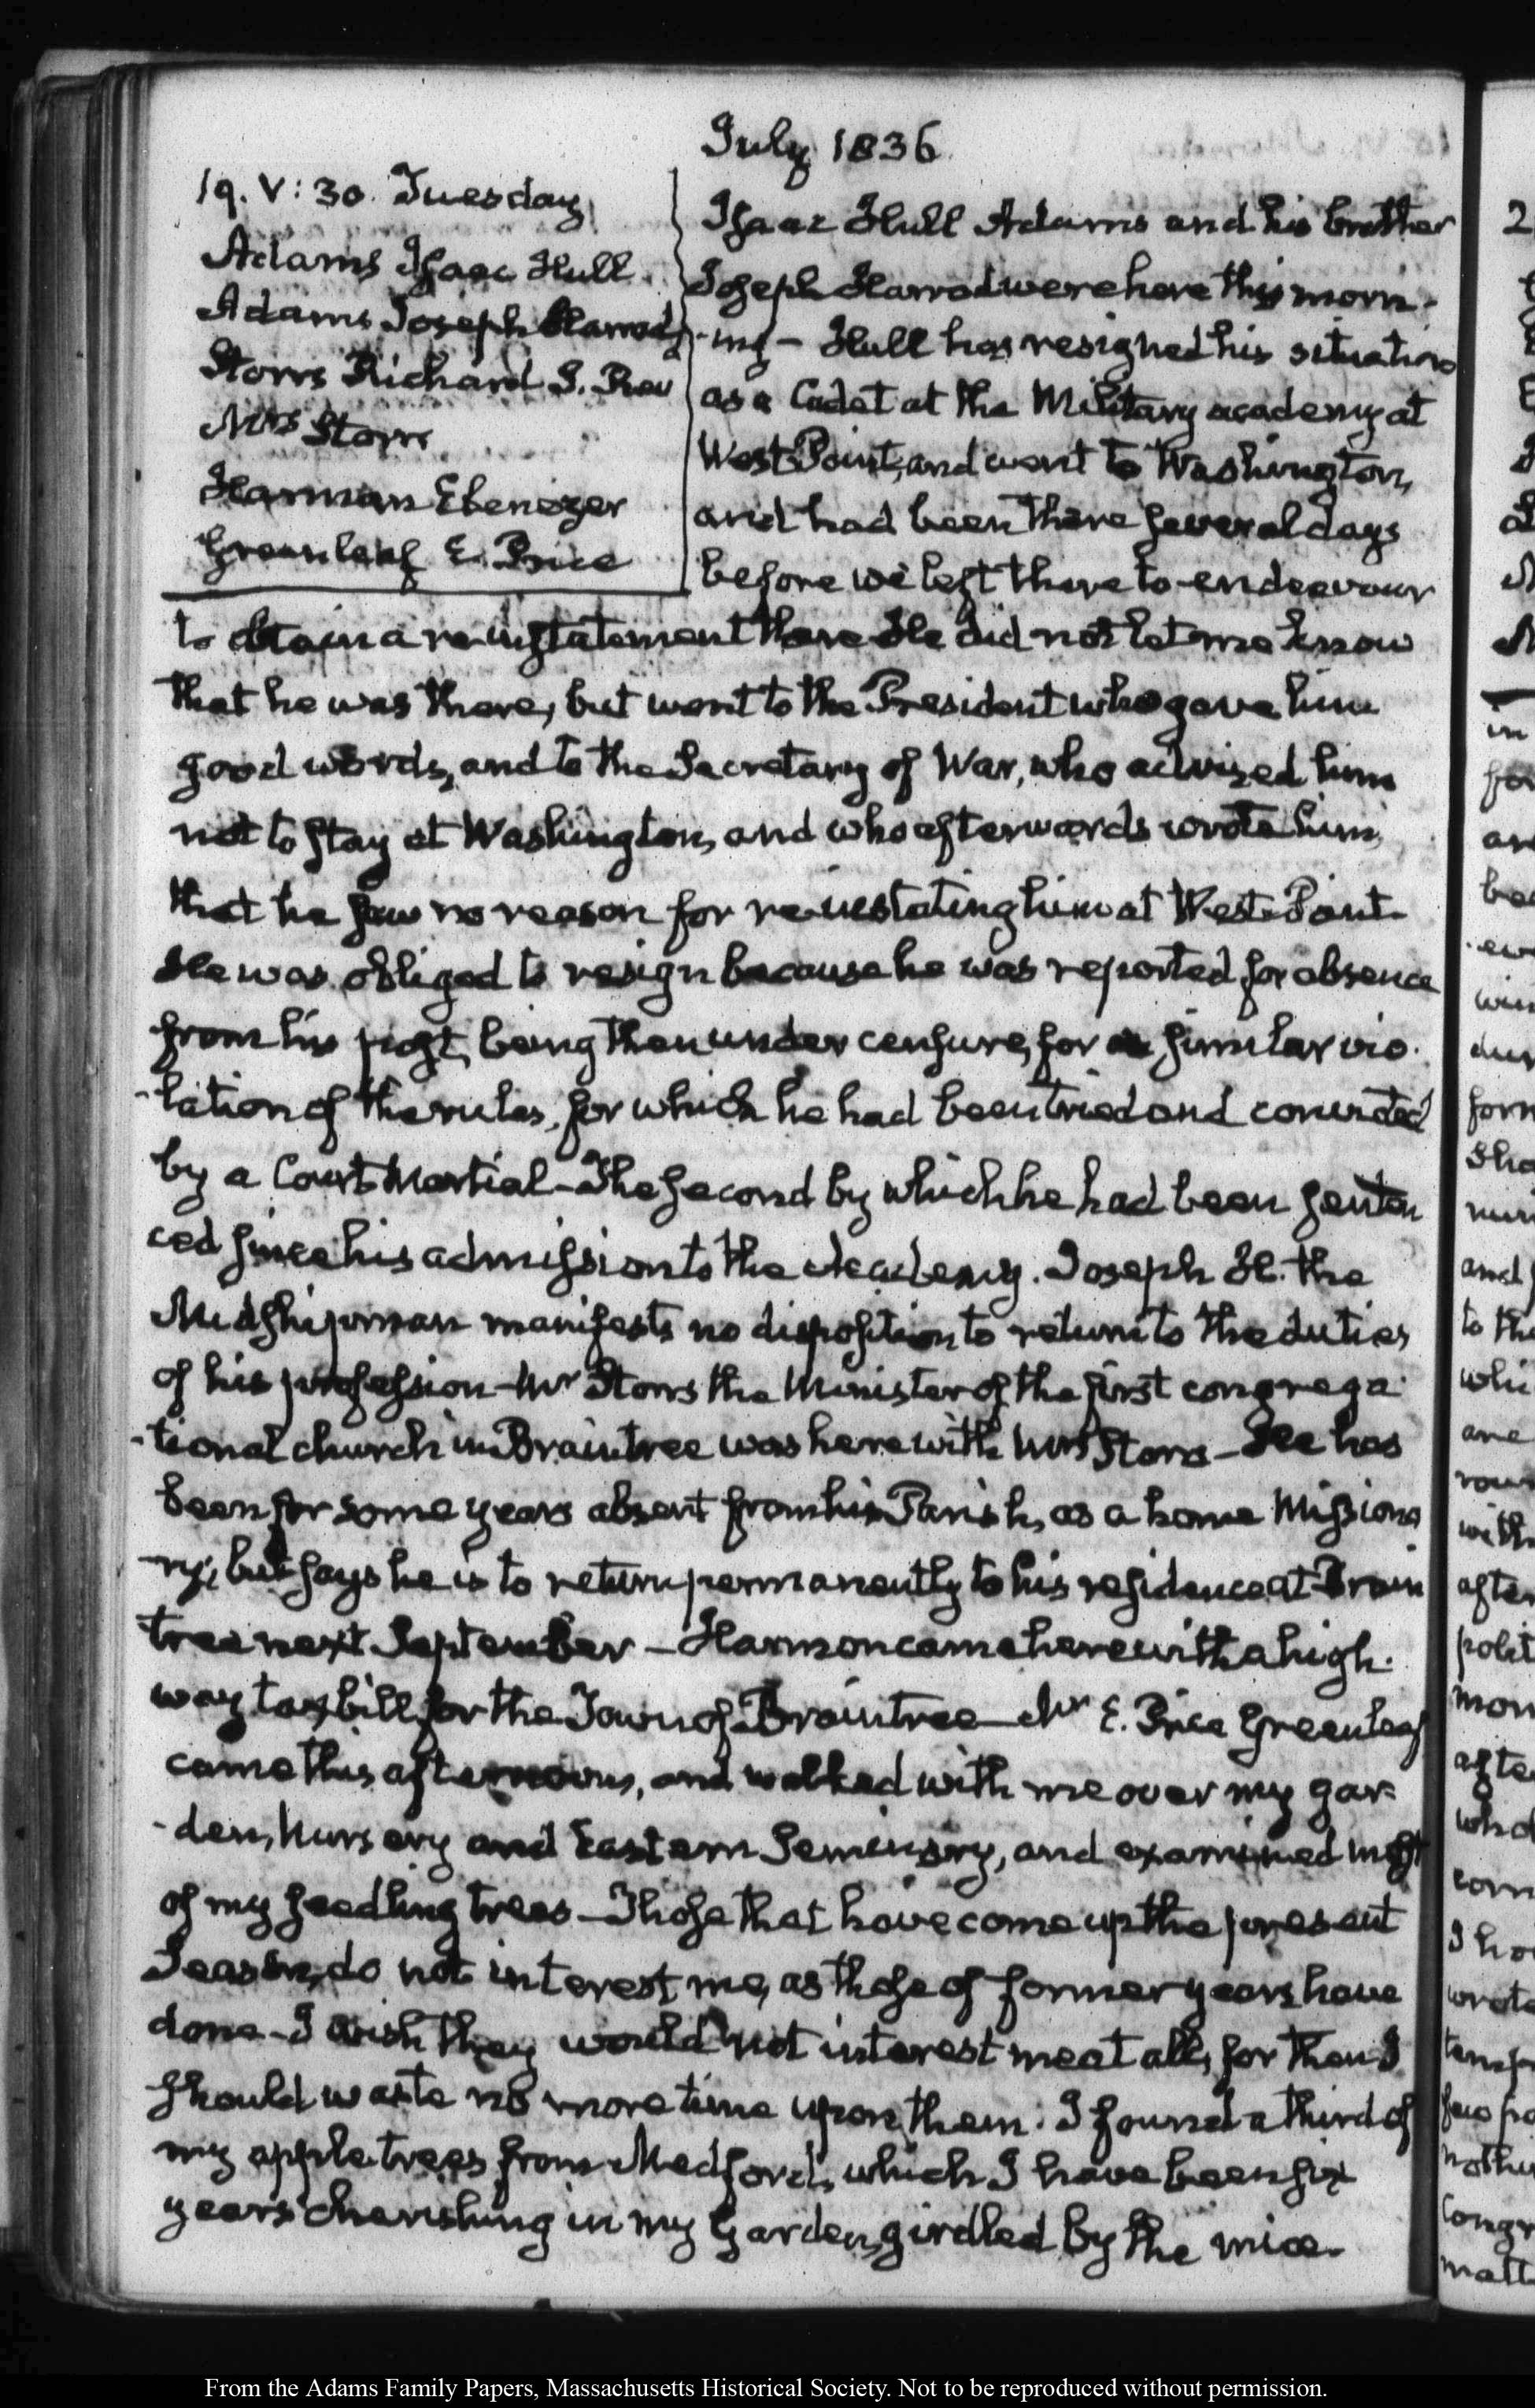 July 1836.
19. V: 30. Tuesday
Adams Isaac Hull.
Adams Joseph Harrod
Storrs Richard S. Rev
Mrs Storrs
Harman Ebenezer
Greenleaf E. Price
Isaac Hull Adams and his brother
Joseph Harrod were here this morn-
-ing – Hull has resigned his situation
as a Cadet at the Military academy at
West-Point, and went to Washington,
and had been there several days
before we left there to endeavour
to obtain a reinstatement there He did not let me know
that he was there, but went to the President who gave him
good words, and to the Secretary of War, who advised him
not to stay at Washington, and who afterwards wrote him,
that he saw no reason for re-instating him at West-Point.
He was obliged to resign because he was reported for absence
from his post, being then under censure, for a similar vio-
-lation of the rules, for which he had been tried and convicted
by a Court-Martial – The second by which he had been senten
ced since his admission to the Academy. Joseph H. the
Midshipman manifests no disposition to return to the duties
of his profession – Mr Storrs the Minister of the first congrega-
-tional church in Braintree was here with Mrs Storrs – He has
been for some years absent from his Parish, as a home Missiona
-ry; but says he is to return permanently to his residence at Brain
tree next September – Harmon came here with a high-
way tax bill for the Town of Braintree – Mr E. Price Greenleaf
came this afternoon, and walked with me over my gar-
-den, Nursery and Eastern Seminary, and examined most
of my seedling trees – Those that have come up the present
Season, do not interest me, as those of former years have
done – I wish they would not interest me at all, for then I
should waste no more time upon them. I found a third of
my apple trees from Medford, which I have been six
years cherishing in my Garden, girdled by the mice.
2
in
for
an
be
win
form
and
to the
whi
are
with
after
polit
mor
afte
who
corn
I ha
wrote
nothi
Congr
matt
From the Adams Family Papers, Massachusetts Historical Society. Not to be reproduced without permission.